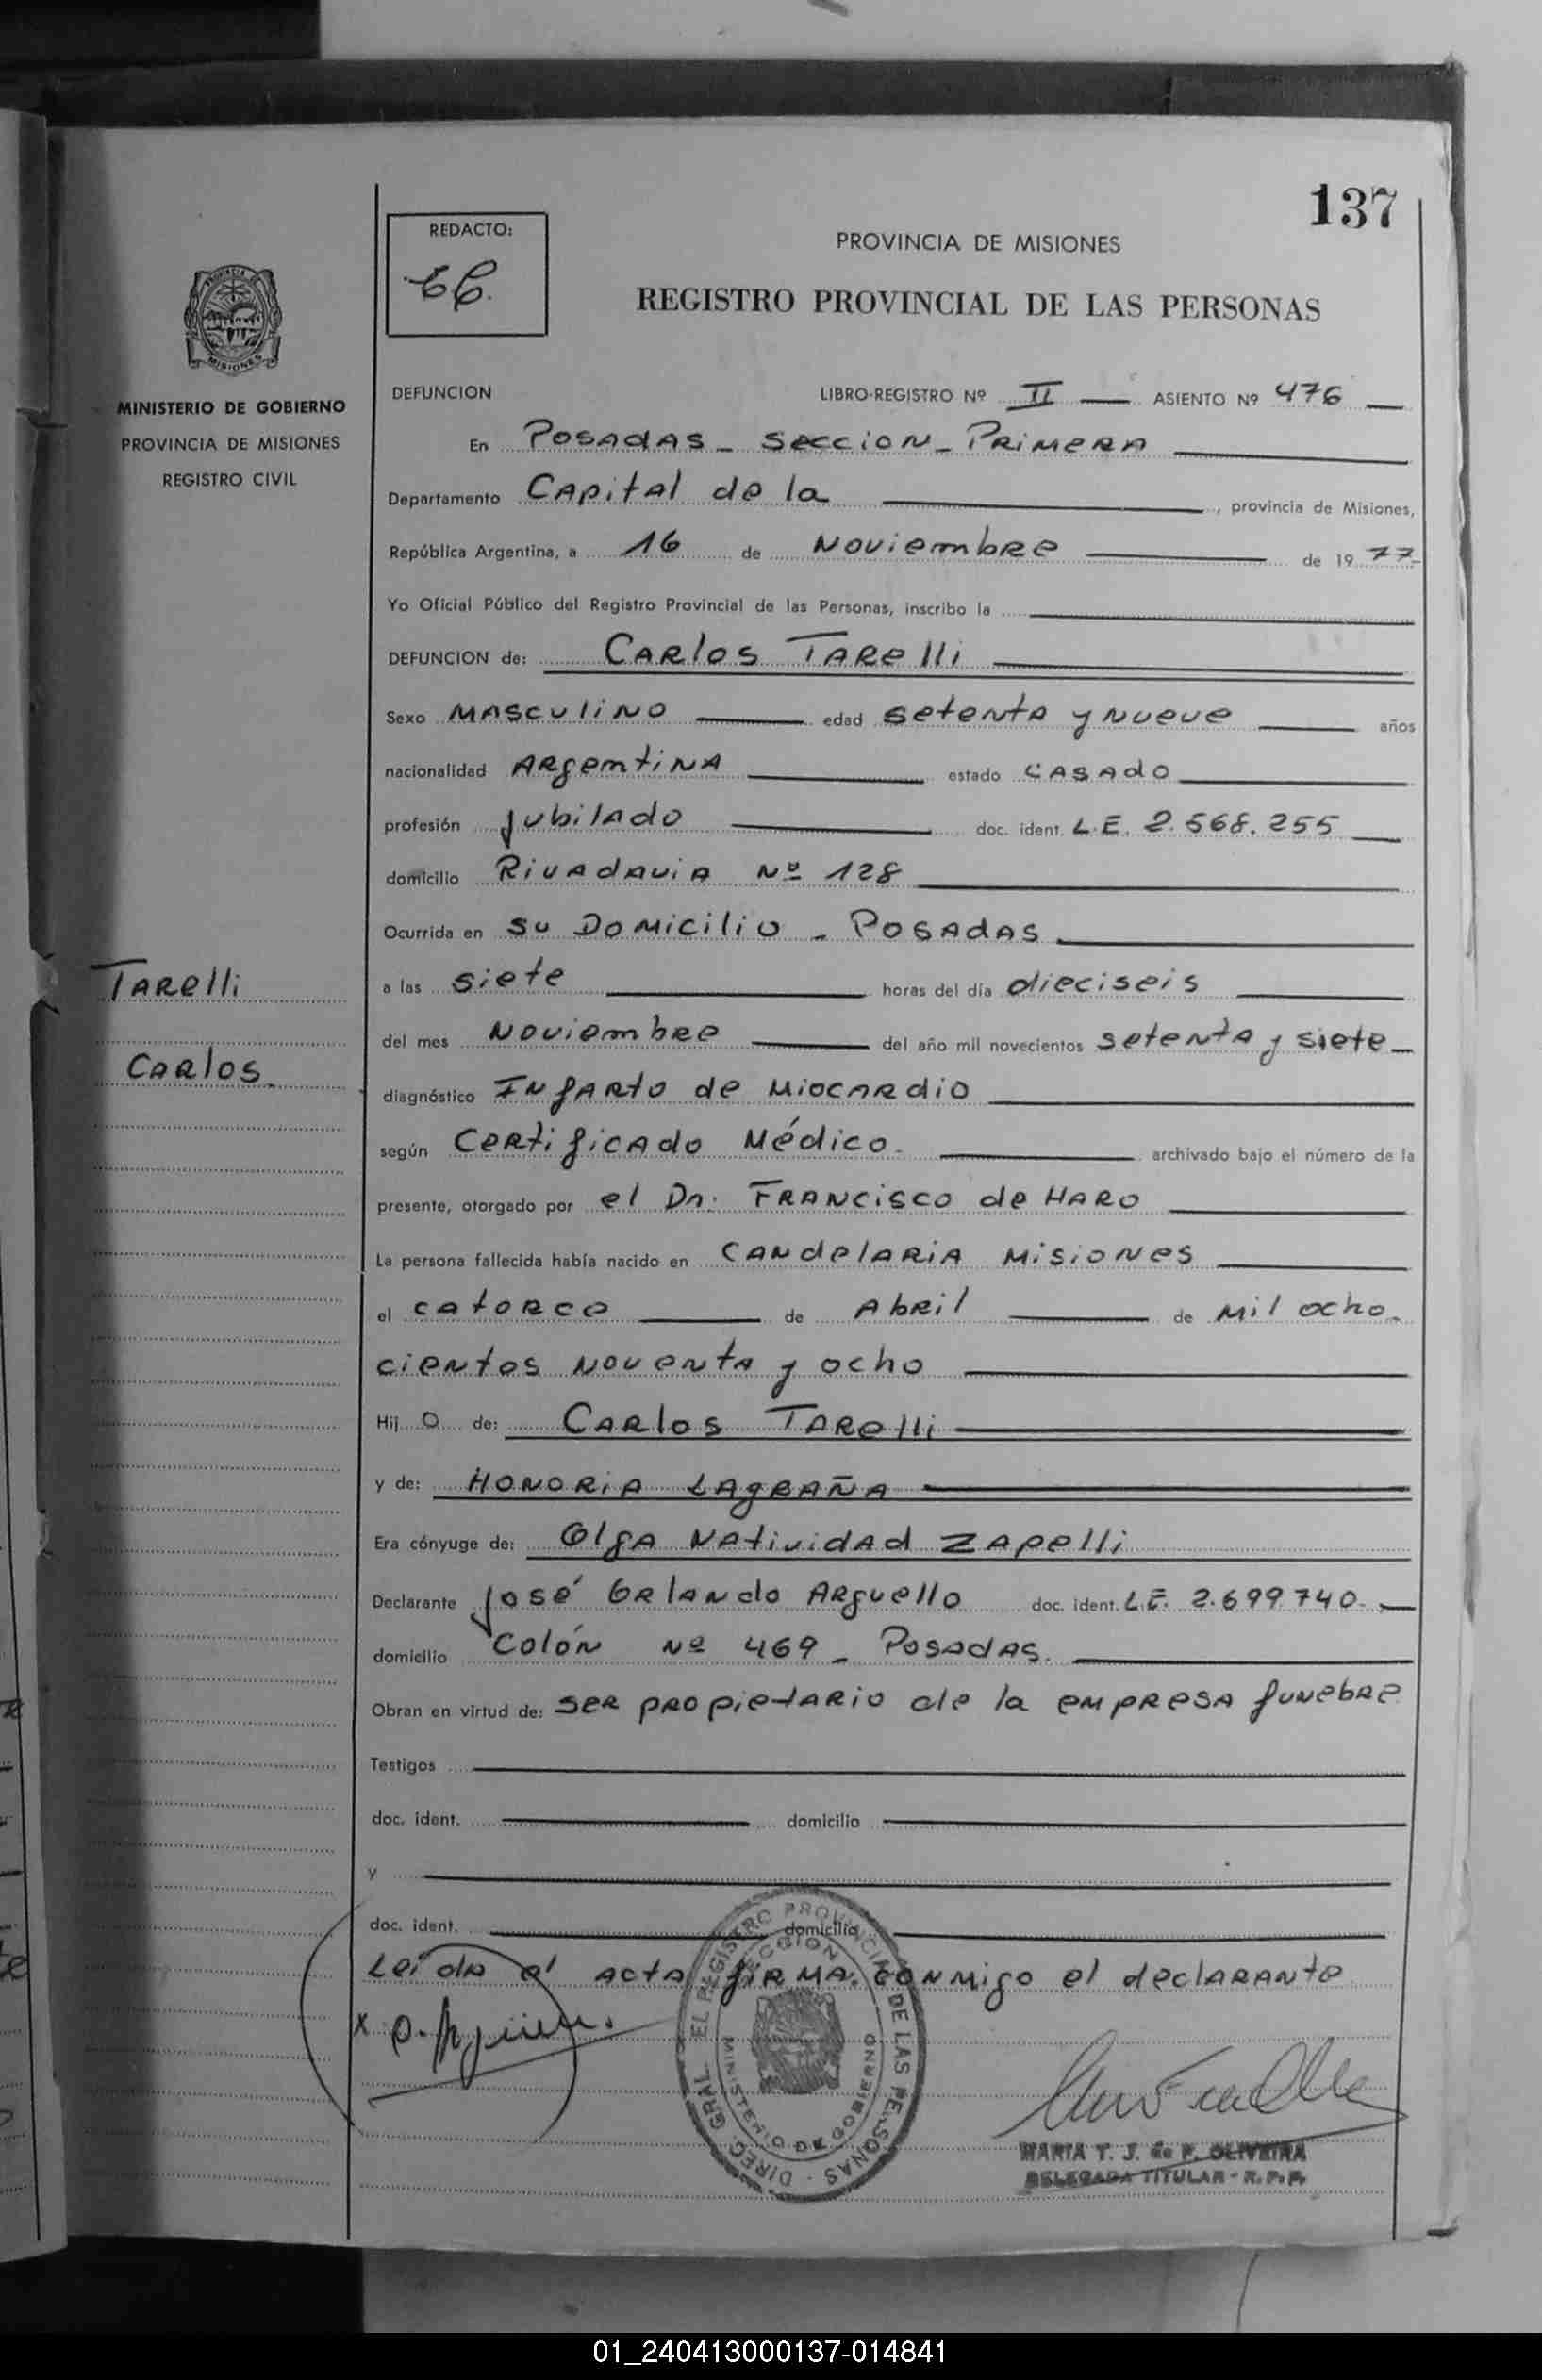 137
REDACTO:
PROVINCIA DE MISIONES
REGISTRO PROVINCIAL DE LAS PERSONAS
MISIONES
MINISTERIO DE GOBIERNO
PROVINCIA DE MISIONES
REGISTRO CIVIL
DEFUNCION LIBRO-REGISTRO Nº II — ASIENTO Nº 476 —
En Posadas - Seccion - Primera
Departamento Capital de la , provincia de Misiones,
República Argentina, a 16 de Noviembre de 1977-
Yo Oficial Público del Registro Provincial de las Personas, inscribo la
DEFUNCION de: Carlos Tarelli
Sexo Masculino edad setenta y nueve años
nacionalidad Argentina estado casado
profesión jubilado doc. ident. L.E. 2.568.255
domicilio Rivadavia Nº 128
Ocurrida en su Domicilio - Posadas
a las siete horas del día dieciseis
del mes Noviembre del año mil novecientos setenta y siete -
diagnóstico Infarto de Miocardio
según Certificado Médico. archivado bajo el número de la
presente, otorgado por el Dr. Francisco de Haro
La persona fallecida había nacido en Candelaria Misiones
el catorce de Abril de Mil ocho-
cientos noventa y ocho
Hij o de: Carlos Tarelli
y de: Honoria Lagraña
Era cónyuge de: Olga Natividad Zapelli
Declarante José Orlando Arguello doc. ident. L.E. 2.699.740.-
domicilio Colón Nº 469 - Posadas.
Obran en virtud de: ser propietario de la empresa funebre
Testigos
doc. ident. domicilio
y
doc. ident. domicilio
Leida el acta firma conmigo el declarante
x
Tarelli
Carlos
DIREC. GRAL. EL REGISTRO PROVINCIAL DE LAS PERSONAS
SECCION
MINISTERIO DE GOBIERNO
MARIA T. J. de P. OLIVEIRA
DELEGADA TITULAR - R. P. P.
01_240413000137-014841